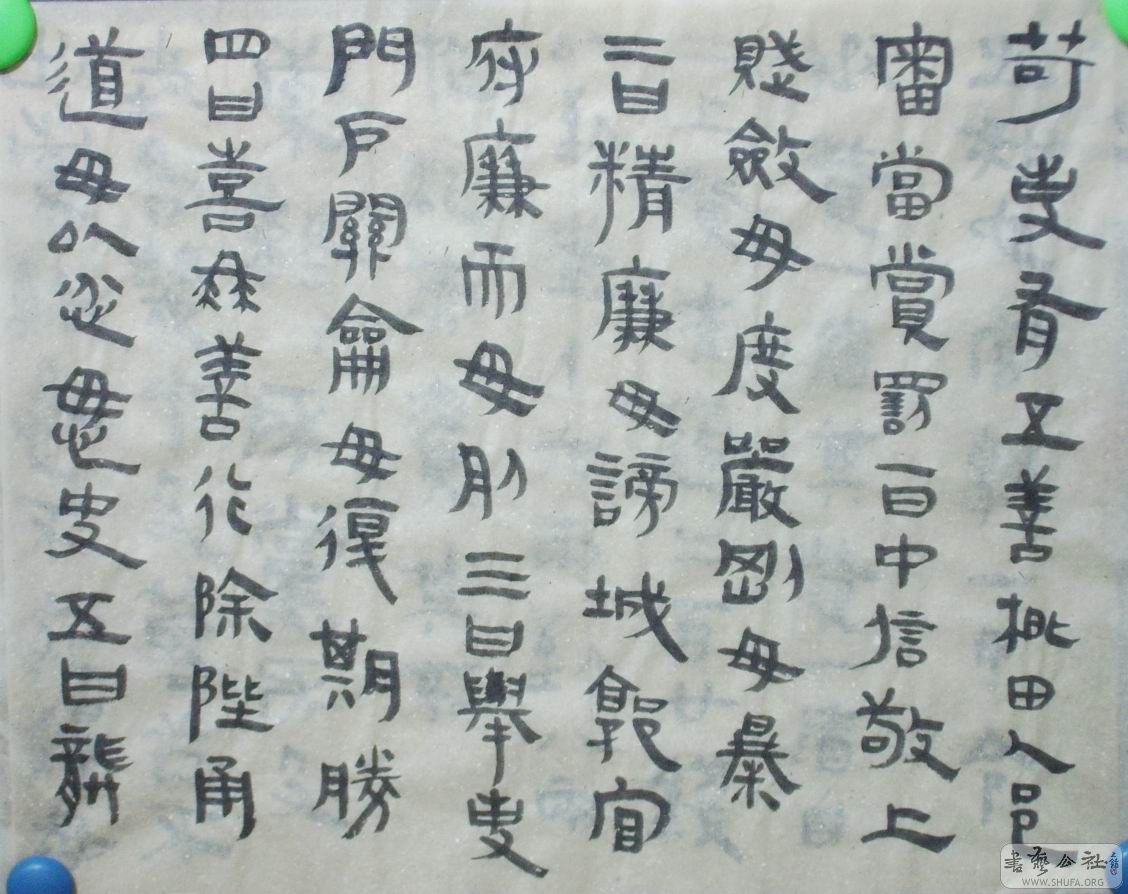 苛吏有五善桃田人邑
審當賞罰一曰中信敬上
賦斂毋度嚴剛毋暴
二曰精廉毋謗城郭官
府廉而毋刖三曰舉吏
門戶關龠毋復期勝
四曰喜為善行除陛甬
道毋以忿怒夬五曰龔
書藝公社
WWW.SHUFA.ORG